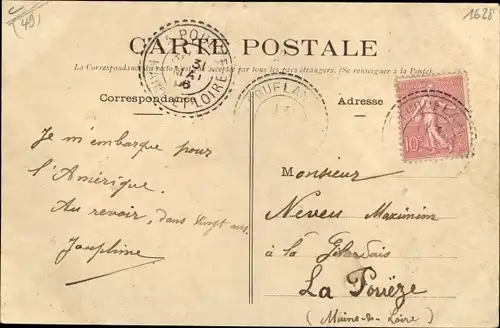 (49)
1628
CARTE POSTALE
La Correspondance au recto n'est pas acceptée par tous les pays étrangers. (Se renseigner à la Poste).
LA POUËZE
3
MAI
06
MAINE-ET-LOIRE
Correspondance
Adresse
10
Je m'embarque pour
l'Amérique.
Au revoir, dans vingt ans.
Joséphine
Monsieur
Neveu Maximin
à la
La Pouëze
(Maine-&-Loire)